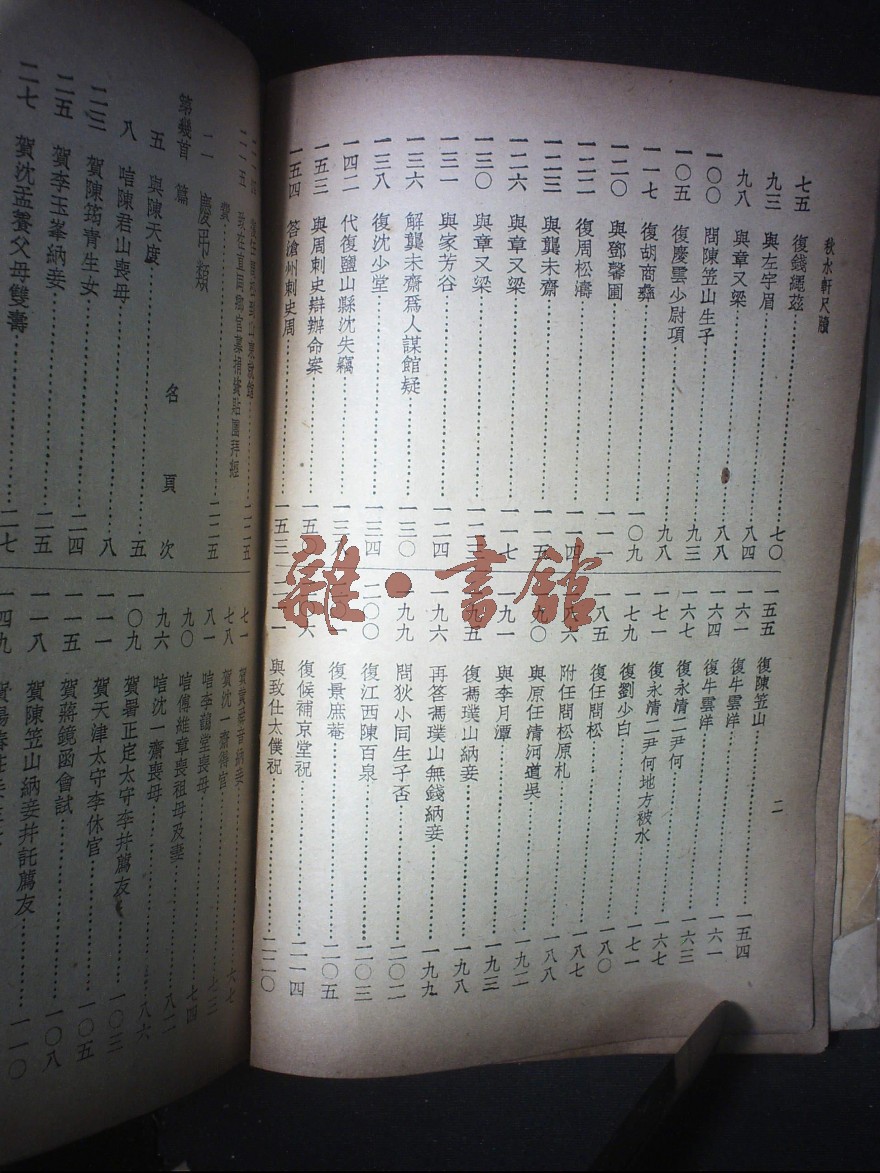 秋水軒尺牘
七五 復錢繩茲……七〇
九三 與左牢眉……八四
九八 與章又梁……八八
一〇〇 問陳笠山生子……九三
一〇五 復慶雲少尉項……九八
一一七 復胡商彝……一〇九
一二〇 與鄧馨圃……一一一
一二二 復周松濤……一一四
一二三 與龔未齋……一一五
一二六 與章又梁……一一七
一三〇 與章又梁……一二三
一三一 與家芳谷……一二四
一三六 解龔未齋爲人謀館疑……一三〇
一三八 復沈少堂……一三四
一四二 代復鹽山縣沈失竊……一三
一五三 與周刺史辯辦命案……一五
一五四 答滄州刺史周……一五三
二
一五五 復陳笠山……一五四
一六一 復牛雲洋……一六一
一六四 復牛雲洋……一六三
一六七 復永清二尹何……一六七
一七一 復永清二尹何地方被水……一七一
一七九 復劉少白……一八〇
一八五 復任問松……一八七
一八六 附任問松原札……一八八
一九〇 與原任清河道吳……一九二
一九一 與李月潭……一九三
一九五 復馮璞山納妾……一九八
一九六 再答馮璞山無錢納妾……一九九
一九九 問狄小同生子否……二〇二
二〇〇 復江西陳百泉……二〇三
復景庶菴……二〇五
復候補京堂祝……二一四
與致仕太僕祝……二二〇
雜·書館
二 慶弔類
第幾首 篇 名 頁 次
五 與陳天度……五
八 唁陳君山喪母……八
二三 賀陳筠青生女……二四
二五 賀李玉峯納妾……二五
二七 賀沈孟養父母雙壽……二七
七一 納妾……六七
七八 賀沈一齋得官……七三
八一 唁李鶴堂喪母……七四
九〇 唁傅維章喪祖母及妻……八二
九六 唁沈一齋喪母……八六
一〇九 賀署正定太守李幷薦友……一〇三
一一一 賀天津太守李休官……一〇五
一一五 賀蔣鏡函會試……一〇八
一一八 賀陳笠山納妾幷託薦友……一一〇
一四九